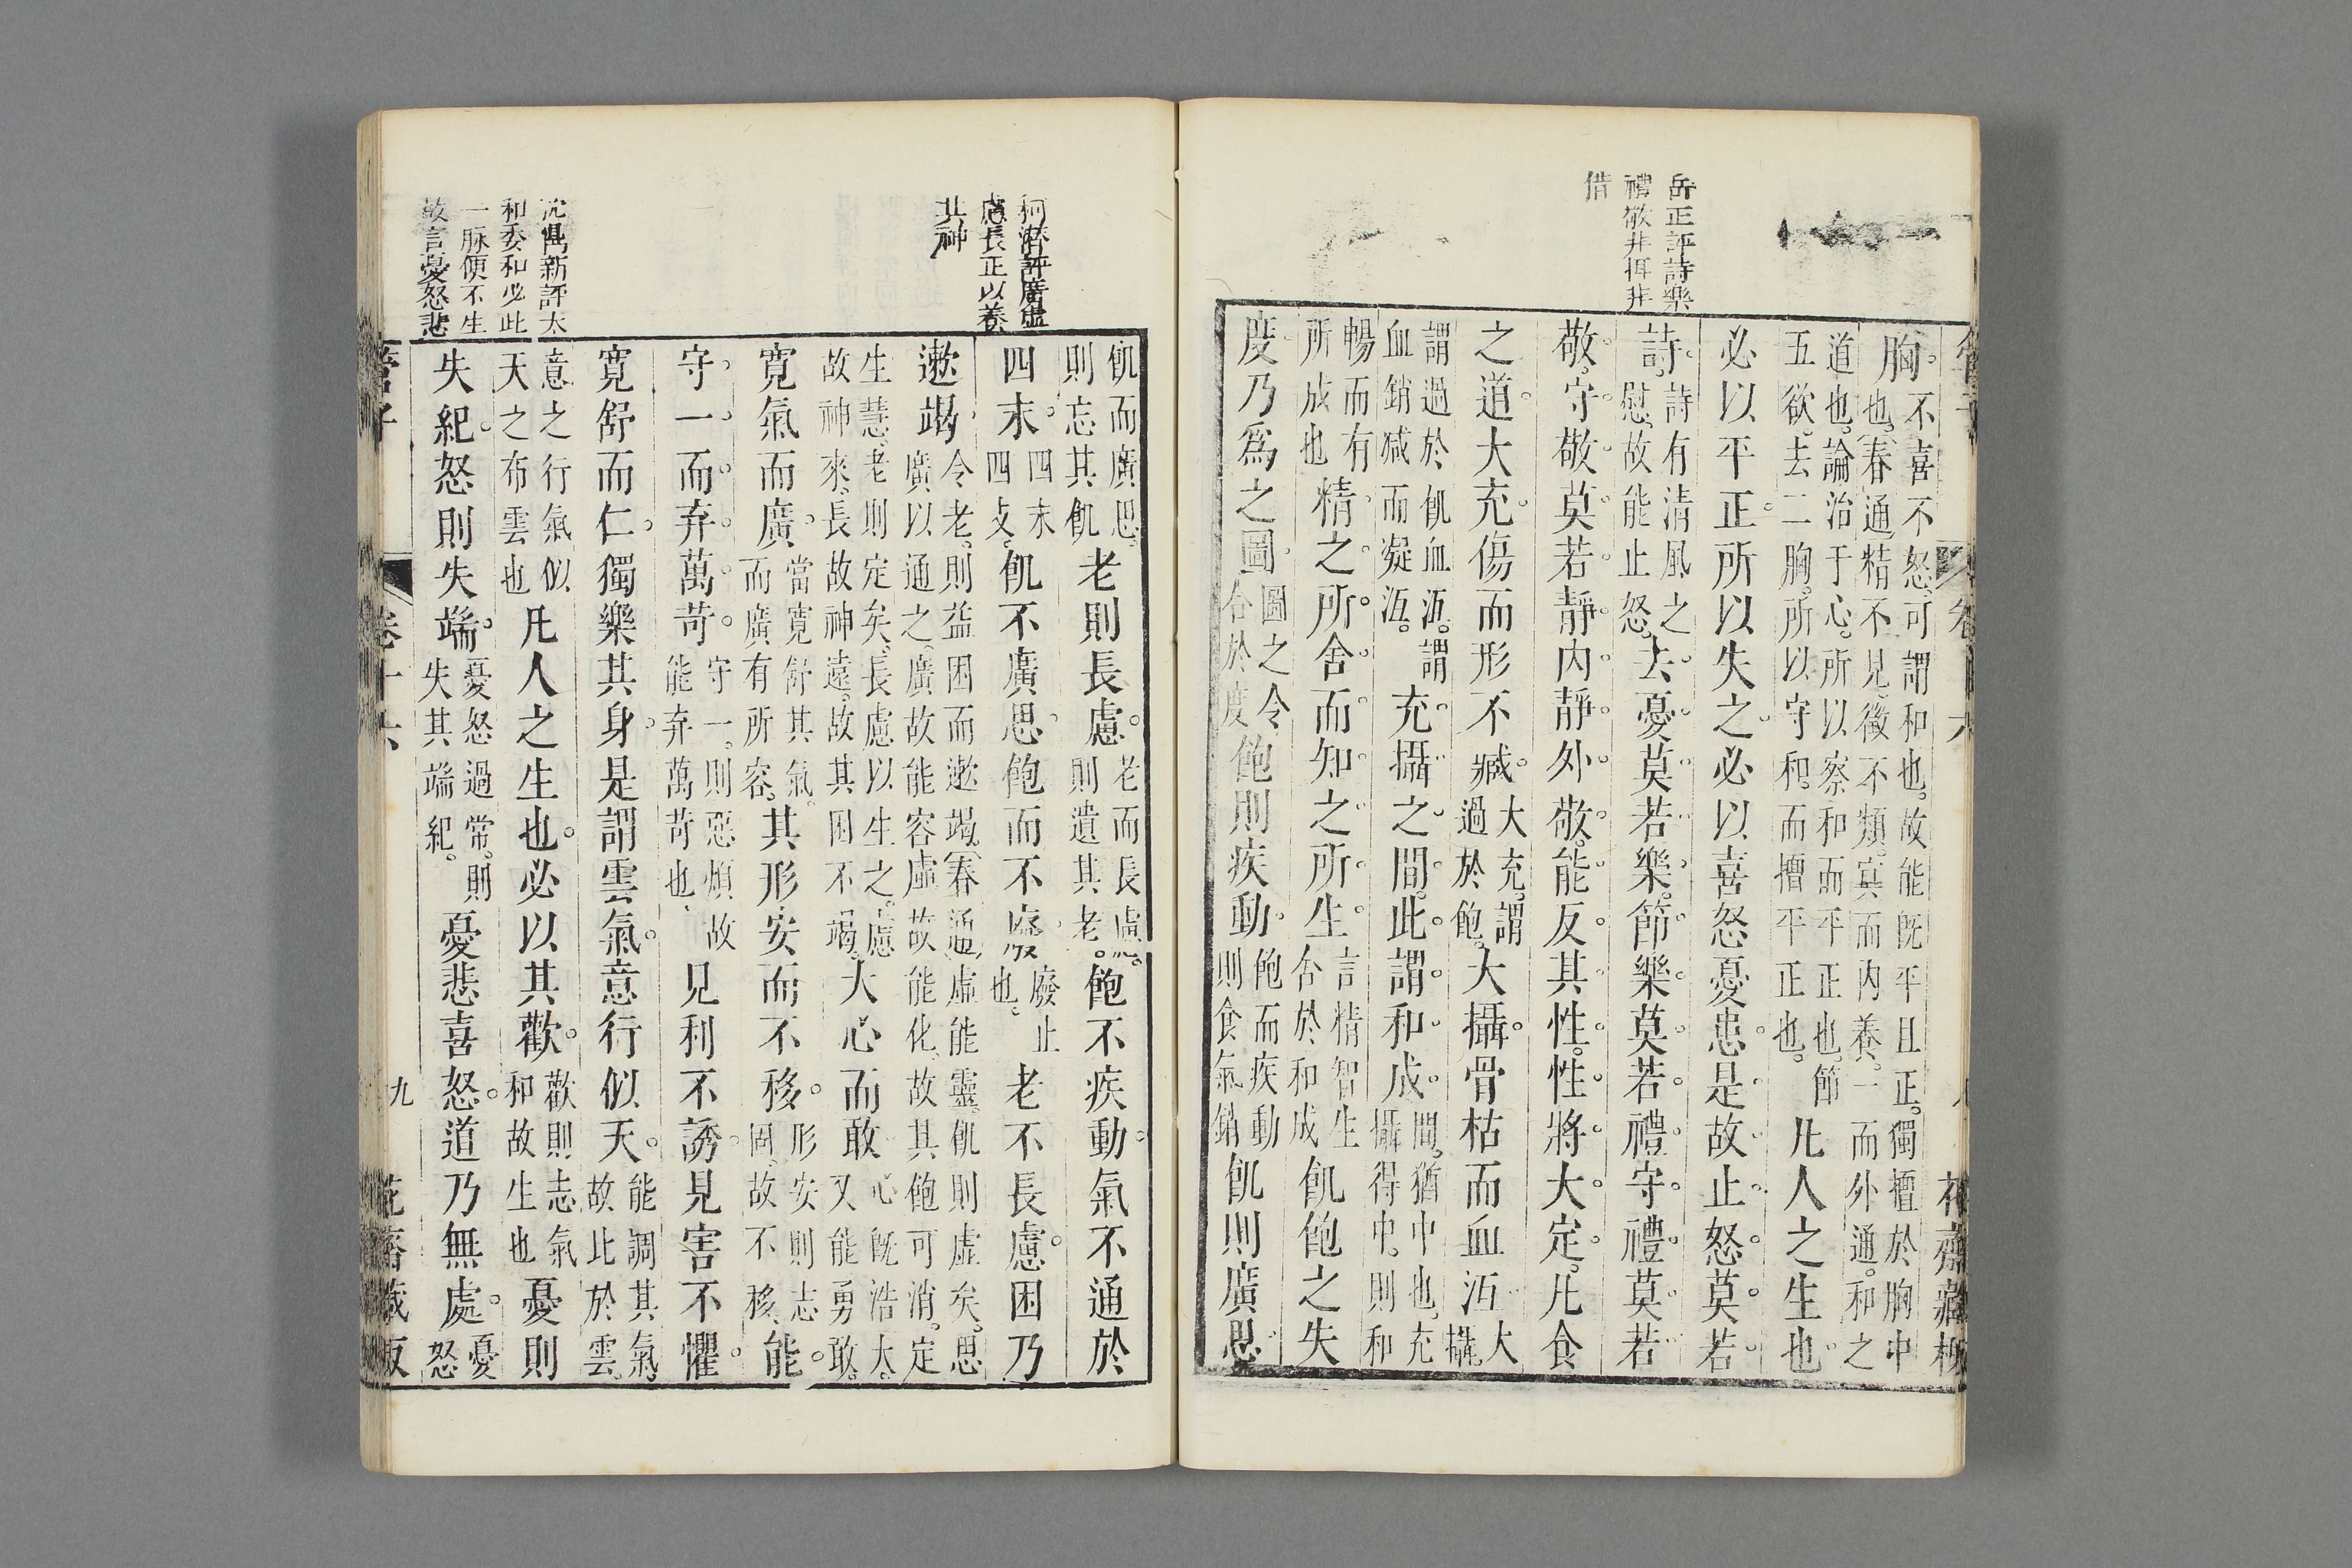 岳正評詩樂
禮敬非拑非
借
胸。不喜不怒、可謂和也。故能旣平且正。獨擅於胸中
也。春通精不見、徵不類。冥而內養。一而外通。和之
道也。論治于心。所以察和而平正也、節
五欲。去二胸。所以守和。而擅平正也。
凡人之生也。
必以平正。所以失之。必以喜怒憂患。是故止怒。莫若
詩。詩有清風之
慰、故能止怒。
去憂。莫若樂。節樂。莫若禮。守禮。莫若
敬。守敬。莫若靜。內靜。外敬。能反其性。性將大定。凡食
之道。大充。傷而形不臧。
大充。謂
過於飽。
大攝。骨枯而血沍。
大
攝。
謂過於飢血沍。謂
血銷減而凝沍。
充攝之間。此謂和成。
間。猶中也。充
攝得中。則和
暢而有
所成也
精之所。舍。而知之所生。
言精智生
舍於和成
飢飽之失
度。乃爲之圖。
圖之令
合於度
飽則疾動。
飽而疾動
則食氣銷
飢則廣思
花齋藏板
柯潛評廣虛
慮長正以養
其神
飢而廣思。
則忘其飢
老則長慮。
老而長慮。
則遺其老。
飽不疾動。氣不通於
四末。
四末
四支。
飢不廣思。飽而不廢。
廢止
也。
老不長慮。困乃
遬竭。
令老。則益困而遬竭。春通虛能靈。飢則虛矣。思
廣以通之。廣故能容虛故能化、故其飽可消。定
生慧、老則定矣、長慮以生之。慮
故神來、長故神遠。故其困不竭。
大心而敢
心旣浩大。
又能勇敢。
寬氣而廣。
當寬舒其氣。
而廣有所容。
其形安而不移。
形安則志
固。故不移。
能
守一。而弃萬苛。
守一。則惡煩故
能弃萬苛也。
見利不誘。見害不懼。
寬舒而仁。獨樂其身。是謂雲氣。意行似天。
能調其氣。
故此於雲。
意之行氣似
天之布雲也
凡人之生也。必以其歡。
歡則志氣
和故生也
憂則
失紀。怒則失端。
憂怒過常。則
失其端紀。
憂悲喜怒。道乃無處。
憂
怒
沈鼎新評太
和委和必此
一脉便不生
故言憂怒悲
管子
卷十六
九
花齋藏板